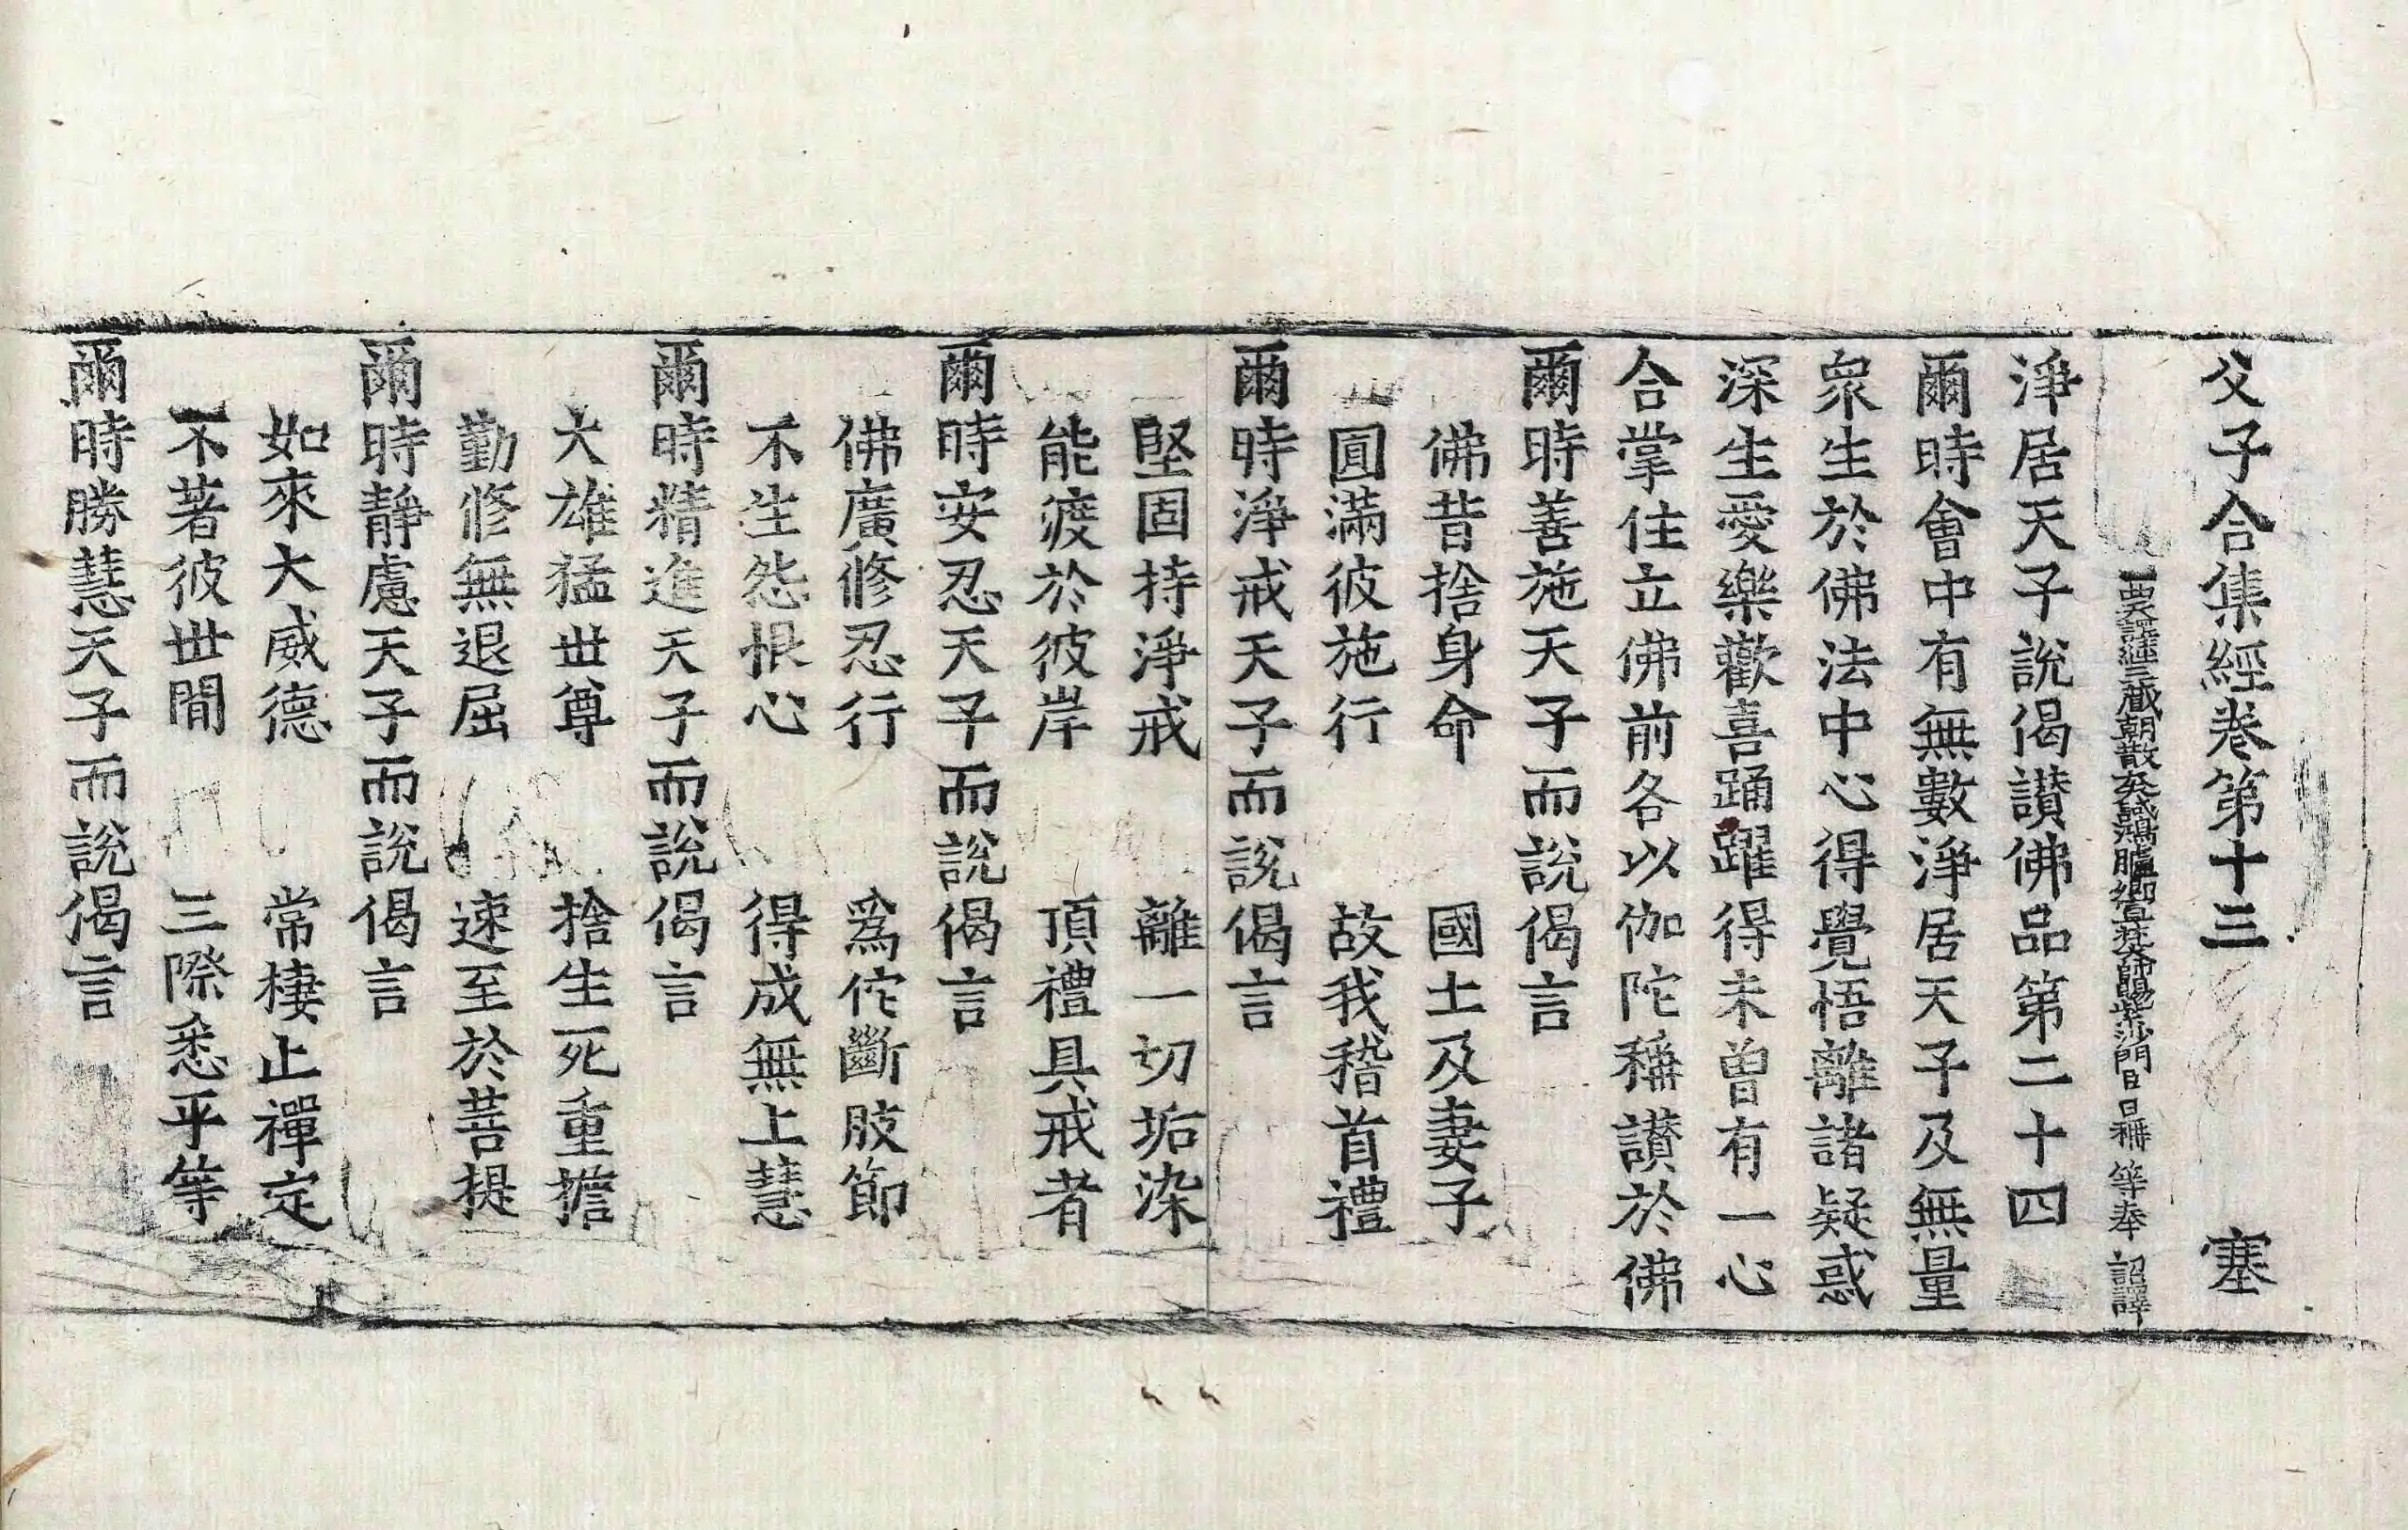 父子合集經卷第十三　塞
西天譯經三藏朝散大夫試鴻臚卿宣梵大師賜紫沙門臣日稱等奉　詔譯
淨居天子說偈讃佛品第二十四
爾時會中有無數淨居天子及無量
衆生於佛法中心得覺悟離諸疑惑
深生愛樂歡喜踊躍得未曾有一心
合掌住立佛前各以伽陀稱讃於佛
爾時善施天子而說偈言
佛昔捨身命　國土及妻子
圓滿彼施行　故我稽首禮
爾時淨戒天子而說偈言
堅固持淨戒　離一切垢染
能渡於彼岸　頂禮具戒者
爾時安忍天子而說偈言
佛廣修忍行　爲佗斷肢節
不生怨恨心　得成無上慧
爾時精進天子而說偈言
大雄猛世尊　捨生死重擔
勤修無退屈　速至於菩提
爾時靜慮天子而說偈言
如來大威德　常棲止禪定
不著彼世間　三際悉平等
爾時勝慧天子而說偈言